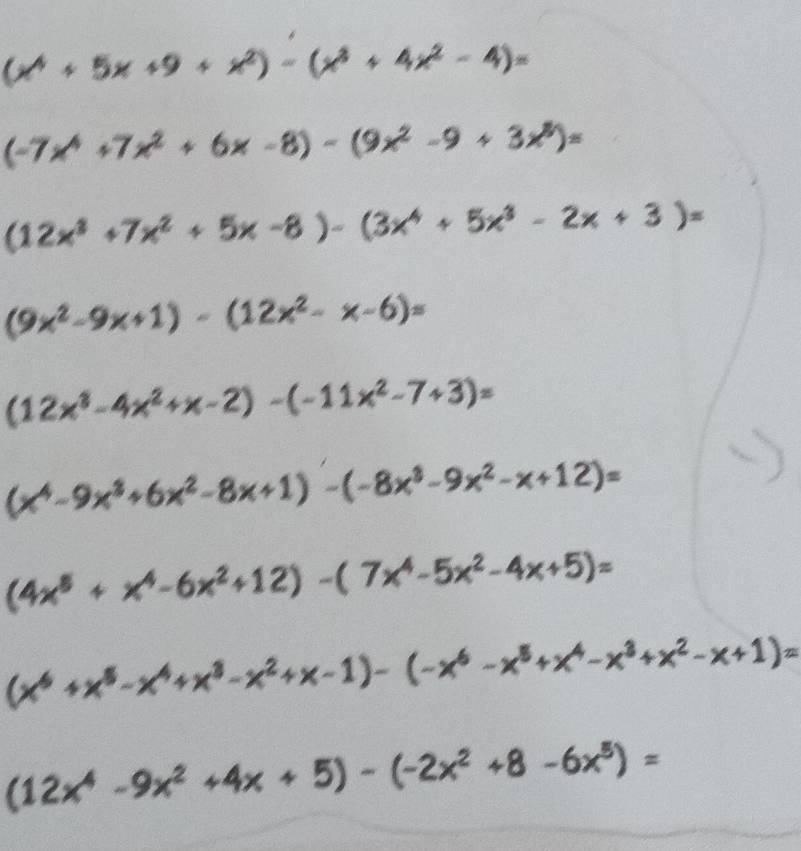 (x⁴ + 5x + 9 + x²) - (x³ + 4x² - 4) =
(-7x⁴ + 7x² + 6x - 8) - (9x² - 9 + 3x⁵) =
(12x³ + 7x² + 5x - 8 ) - (3x⁴ + 5x³ - 2x + 3 ) =
(9x² - 9x + 1) - (12x² - x - 6) =
(12x³ - 4x² + x - 2) - (-11x² - 7 + 3) =
(x⁴ - 9x³ + 6x² - 8x + 1) - (-8x³ - 9x² - x + 12) =
(4x⁵ + x⁴ - 6x² + 12) - ( 7x⁴ - 5x² - 4x + 5) =
(x⁶ + x⁵ - x⁴ + x³ - x² + x - 1) - (-x⁶ - x⁵ + x⁴ - x³ + x² - x + 1) =
(12x⁴ - 9x² + 4x + 5) - (-2x² + 8 - 6x⁵) =